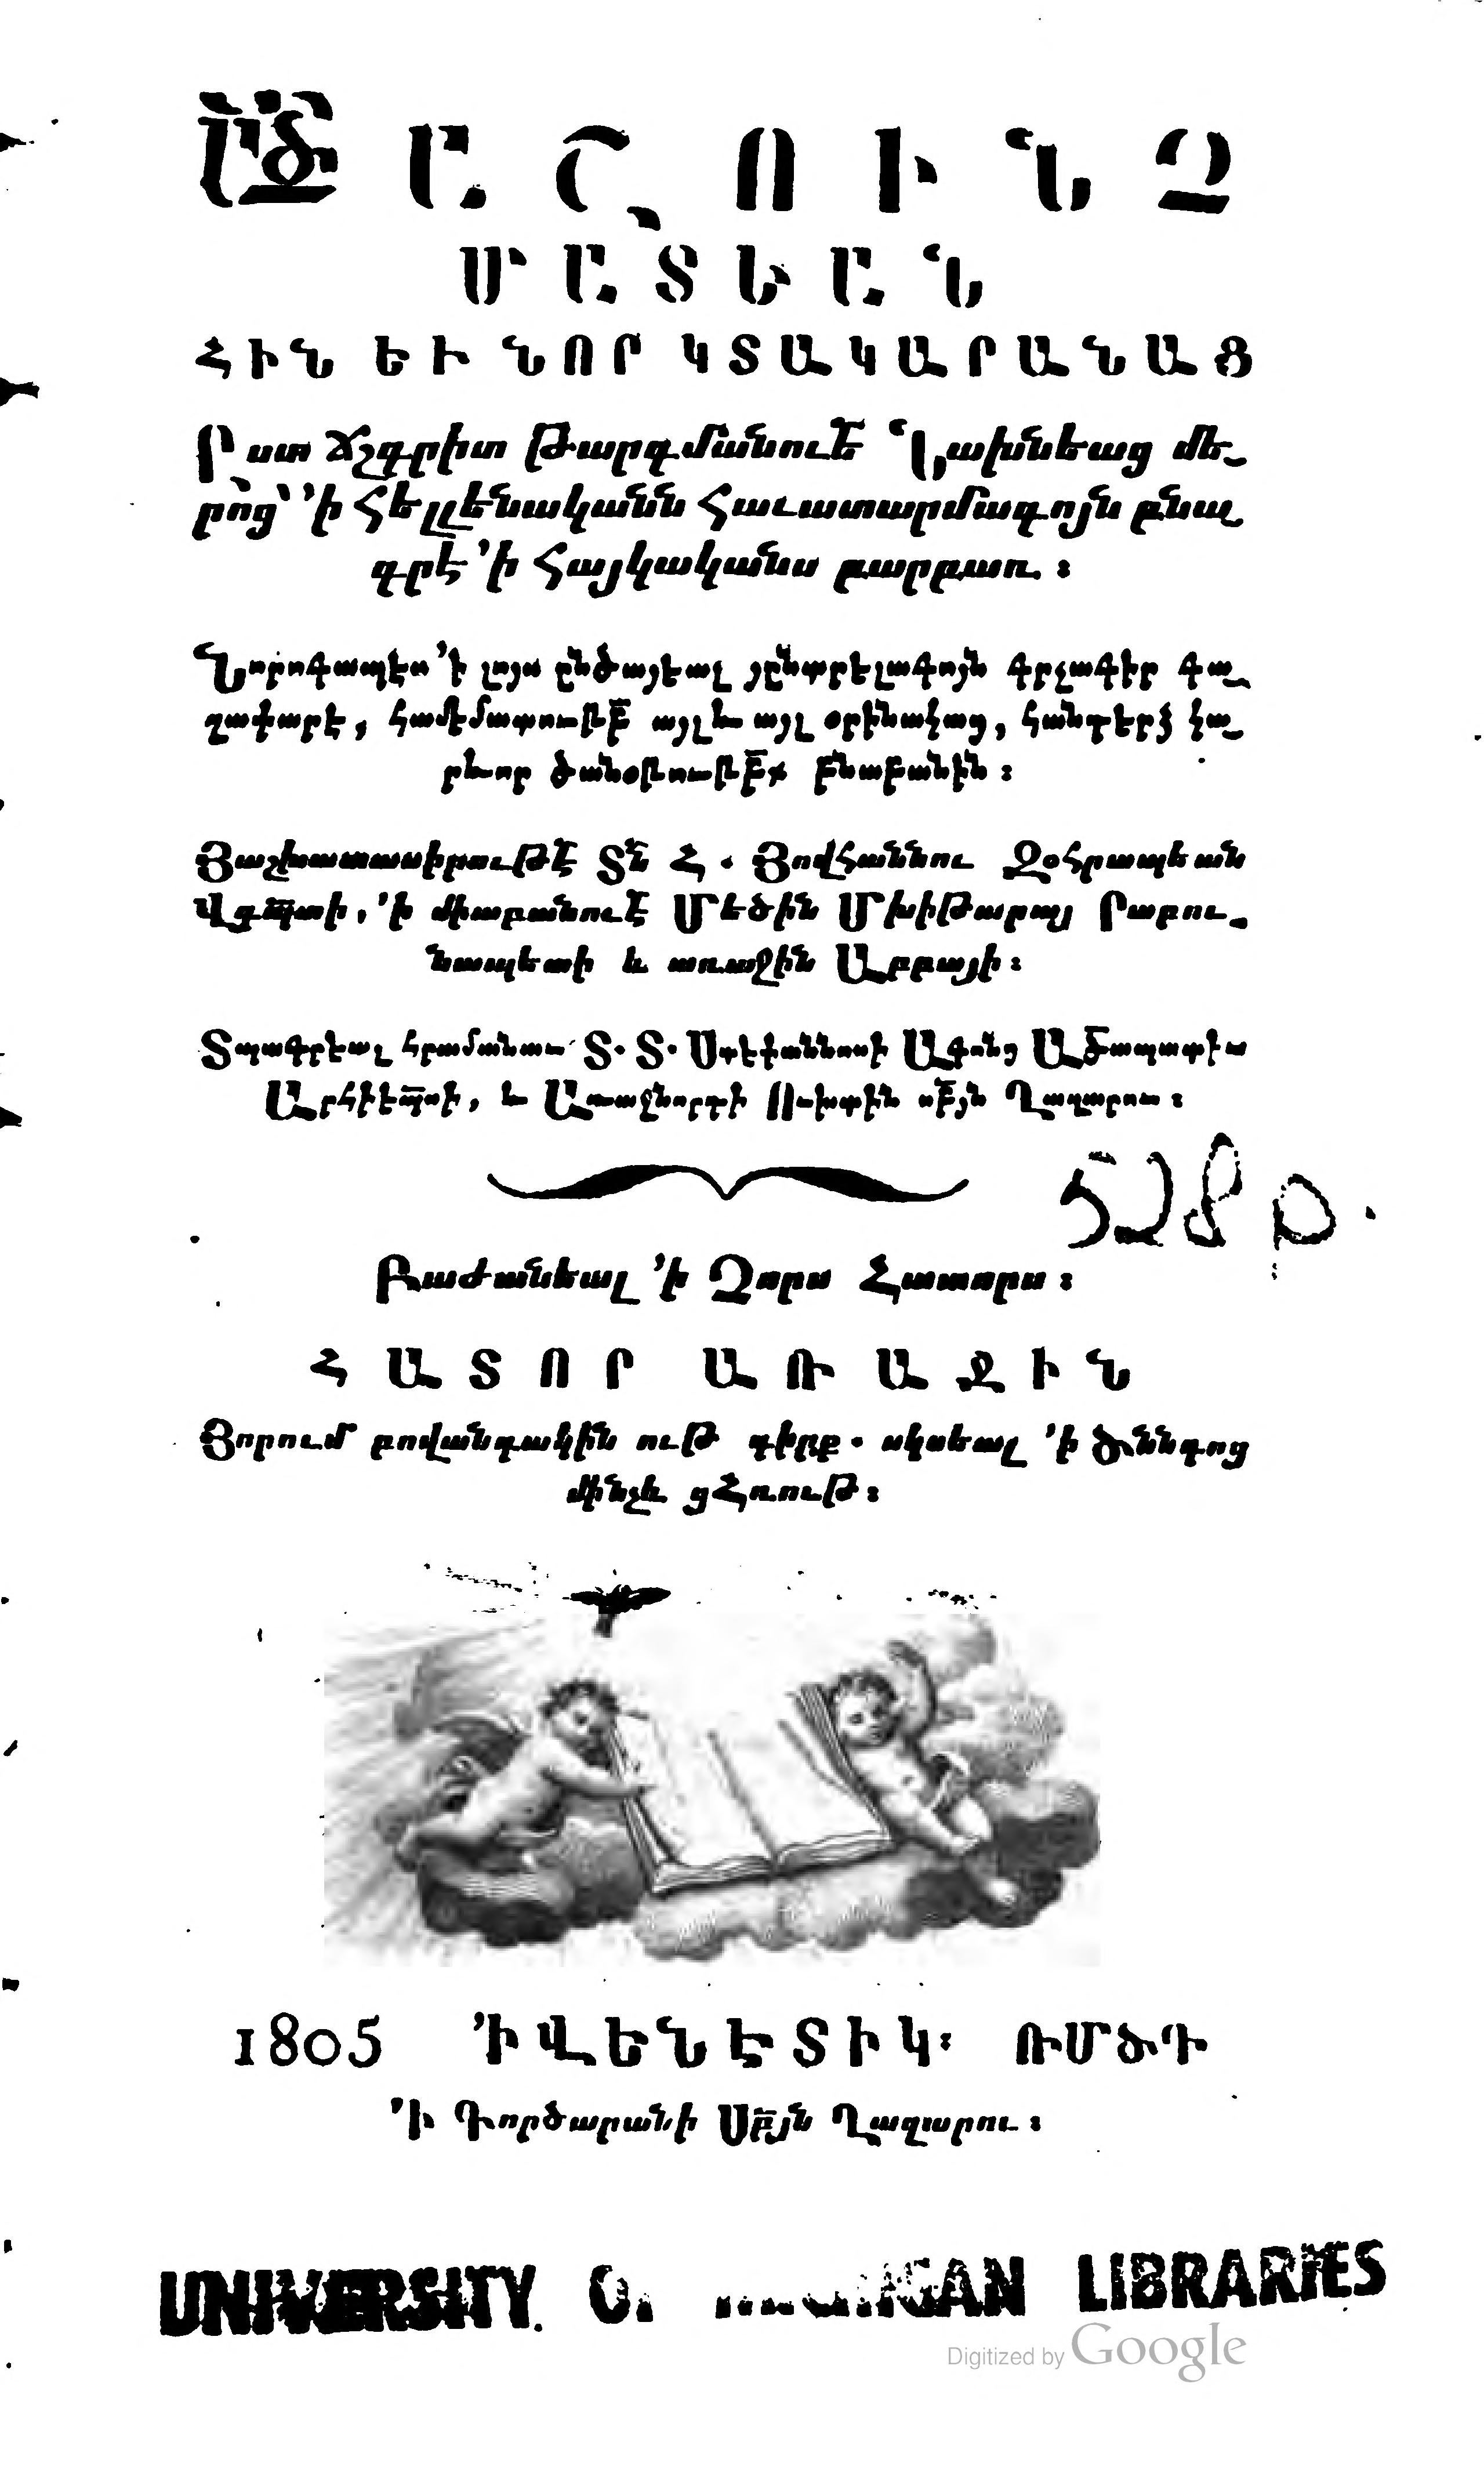 ԱԾԱՇՈՒՆՉ
ՄԱՏԵԱՆ
ՀԻՆ ԵՒ ՆՈՐ ԿՏԱԿԱՐԱՆԱՑ
Ըստ ճշգրիտ թարգմանուե՟ նախնեաց մե֊
րոց՝ ՚ի հելլենականն հաւատարմագոյն բնա֊
գրէ ՚ի հայկականս բարբառ ։
Նորոգապէս ՚ի լոյս ընծայեալ յընտրելագոյն գրչագիր գա֊
ղափարէ, համեմատութբ՟ այլևայլ օրինակաց, հանդերձ կա֊
րևոր ծանօթութբք՟ բնաբանին ։
Յաշխատասիրութէ՟ Տն՟ Հ. Յովհաննու Զօհրապեան
Վգպտի՟, ՚ի միաբանուէ՟ Մեծին Մխիթարայ Րաբու֊
նապետի և առաջին Աբբայի ։
Տպագրեալ հրամանաւ Տ. Տ. Ստեփաննոսի Ագոնց Ածապատիւ
Արհիէպսի՟, և Առաջնորդի Ուխտին սբ՟յն Ղազարու ։
528 p.
Բաժանեալ ՚ի Չորս Հատորս ։
ՀԱՏՈՐ ԱՌԱՋԻՆ
Յորում բովանդակին ութ գիրք. սկսեալ ՚ի ծննդոց
մինչև ցՀռութ ։
1805 ՚Ի ՎԵՆԷՏԻԿ։ ՌՄԾԴ
՚Ի Գործարանի Սբ՟յն Ղազարու ։
UNIVERSITY OF MICHIGAN LIBRARIES
Digitized by Google